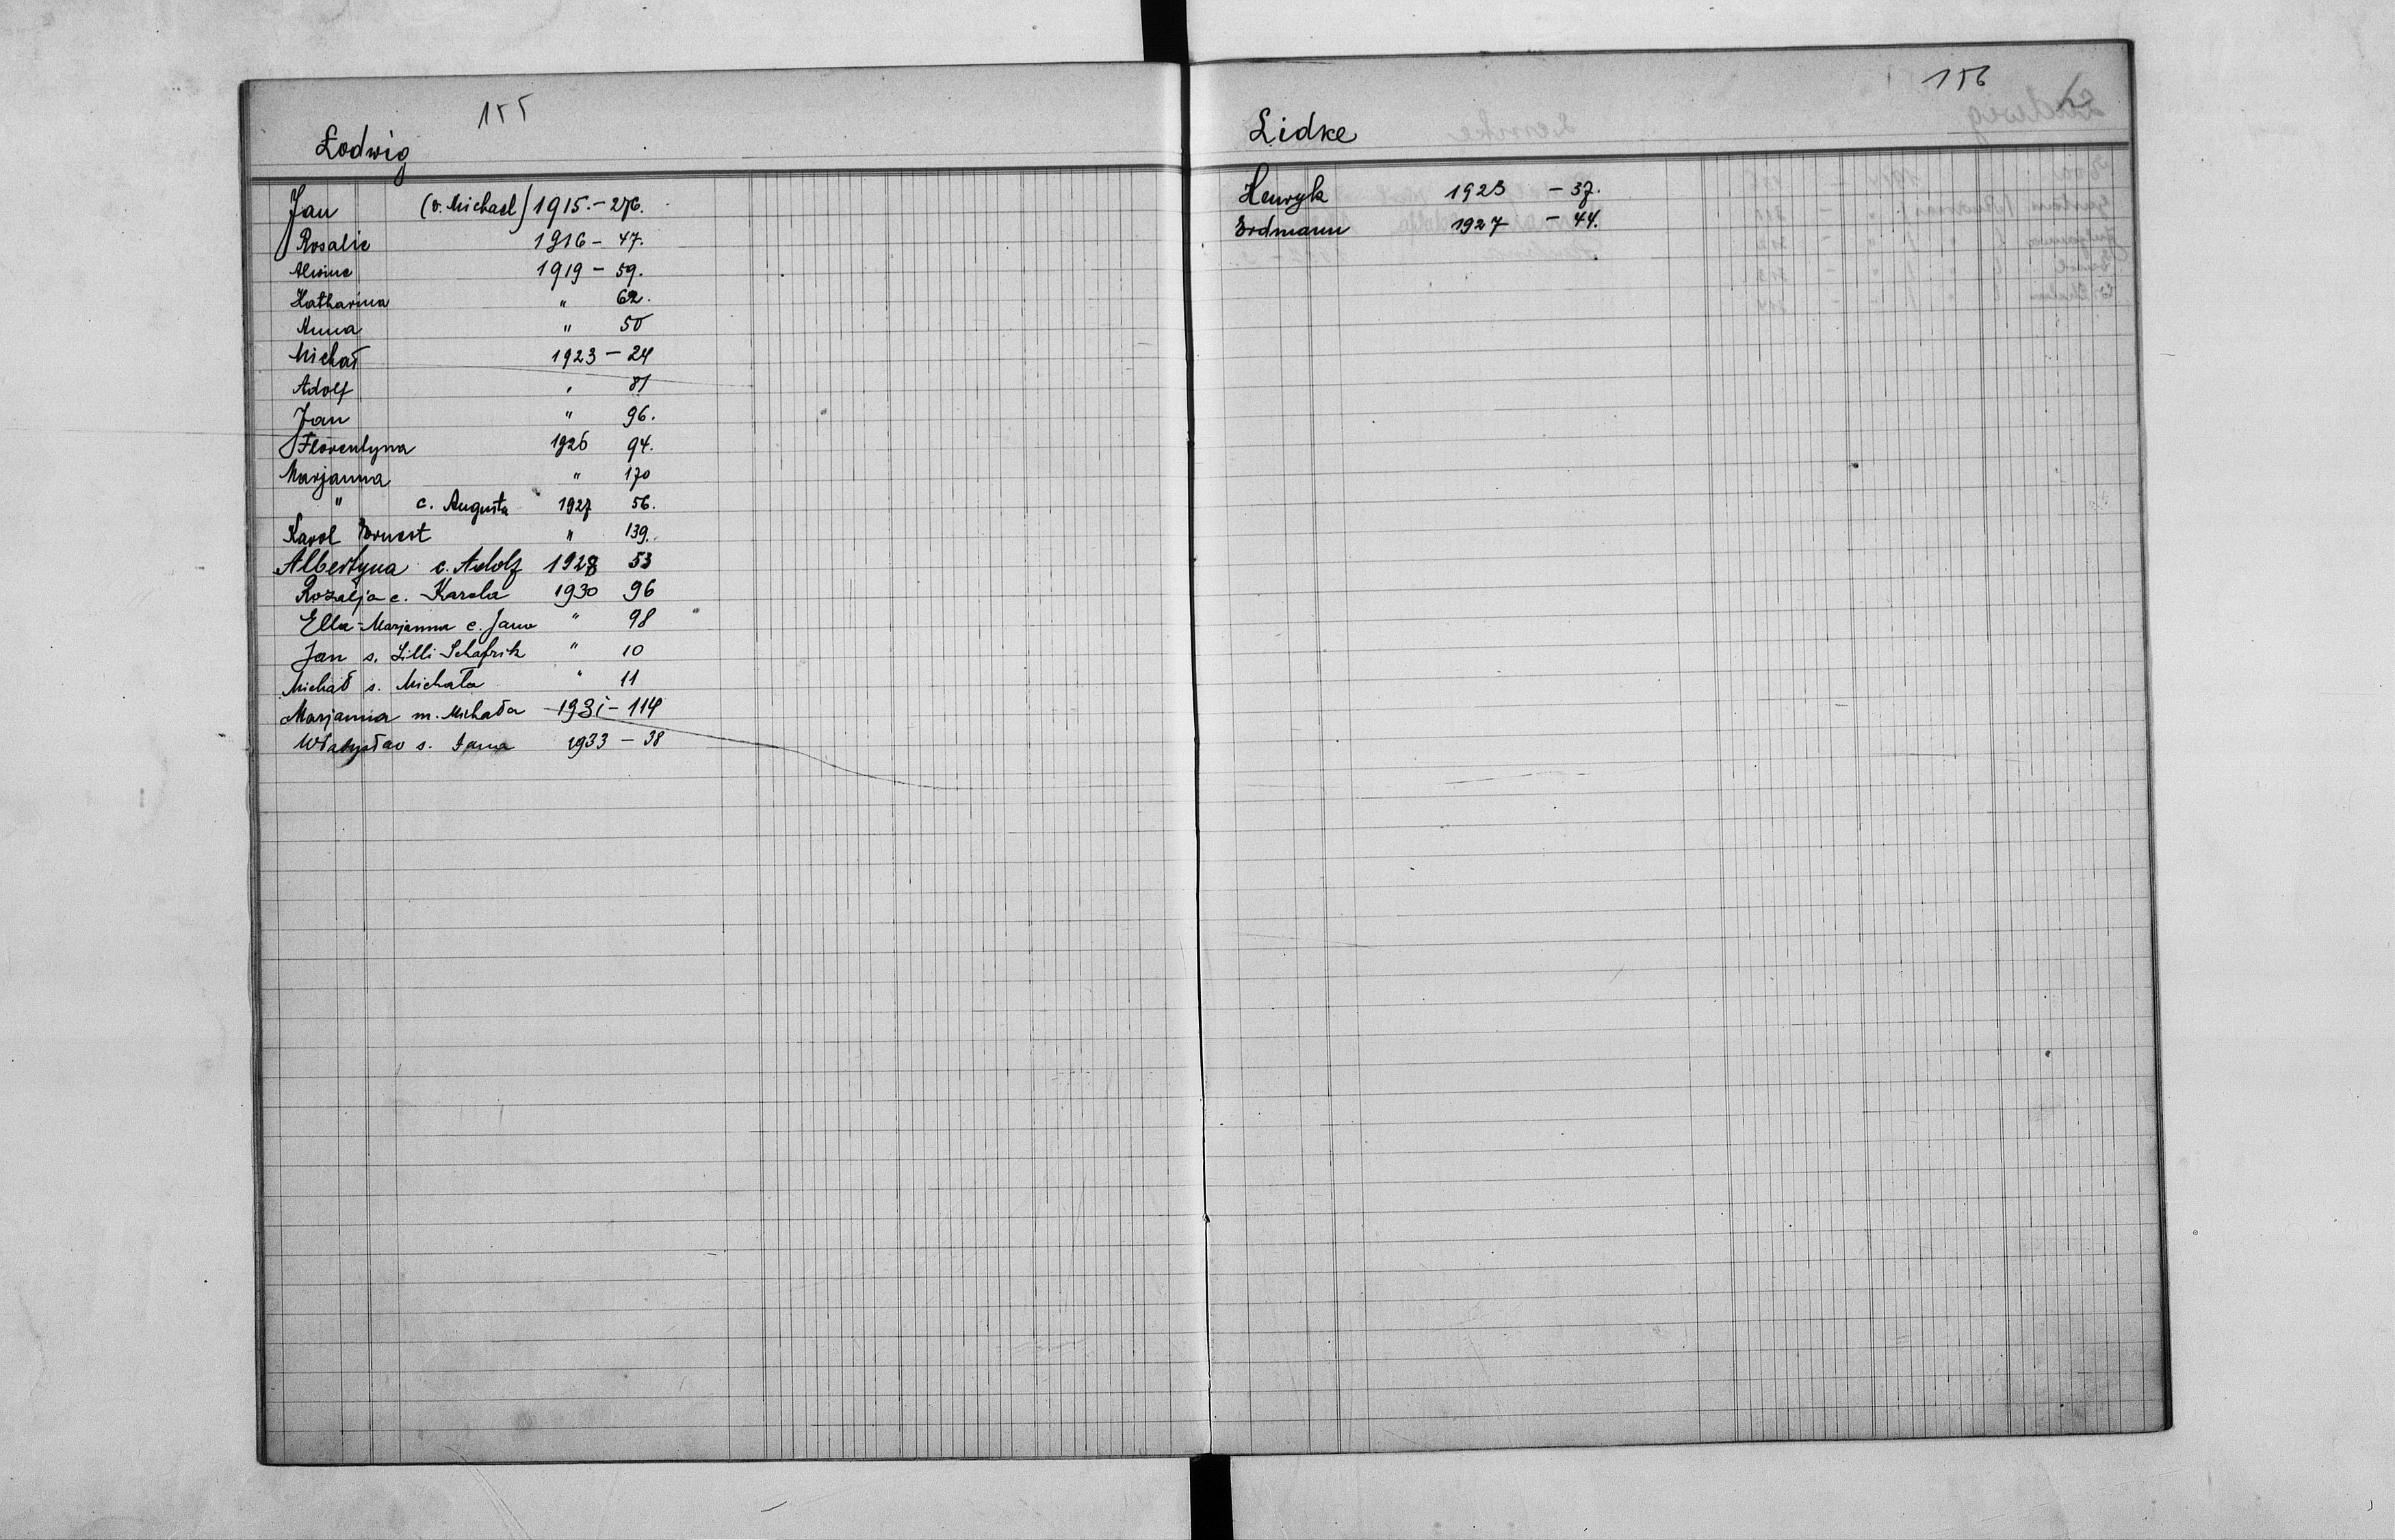 155
Lodwig
Jan (v. Michael) 1915. - 276.
Rosalie 1916 - 47.
Alwine 1919 - 59.
Katharina " 62.
Anna " 50
Michał 1923 - 24
Adolf " 81
Jan " 96.
Florentyna 1926 94.
Marjanna " 170
" c. Augusta 1927 56.
Karol Ernest " 139.
Albertyna c. Adolf 1928 53
Rozalja c. Karola 1930 96
Ella-Marjanna c. Jana " 98
Jan s. Lilli Schafrik " 10
Michał s. Michała " 11
Marjanna m. Michała 1931 - 114
Władysław s. Jana 1933 - 38
156
Lidke
Henryk 1923 - 37.
Erdmann 1927 - 44.